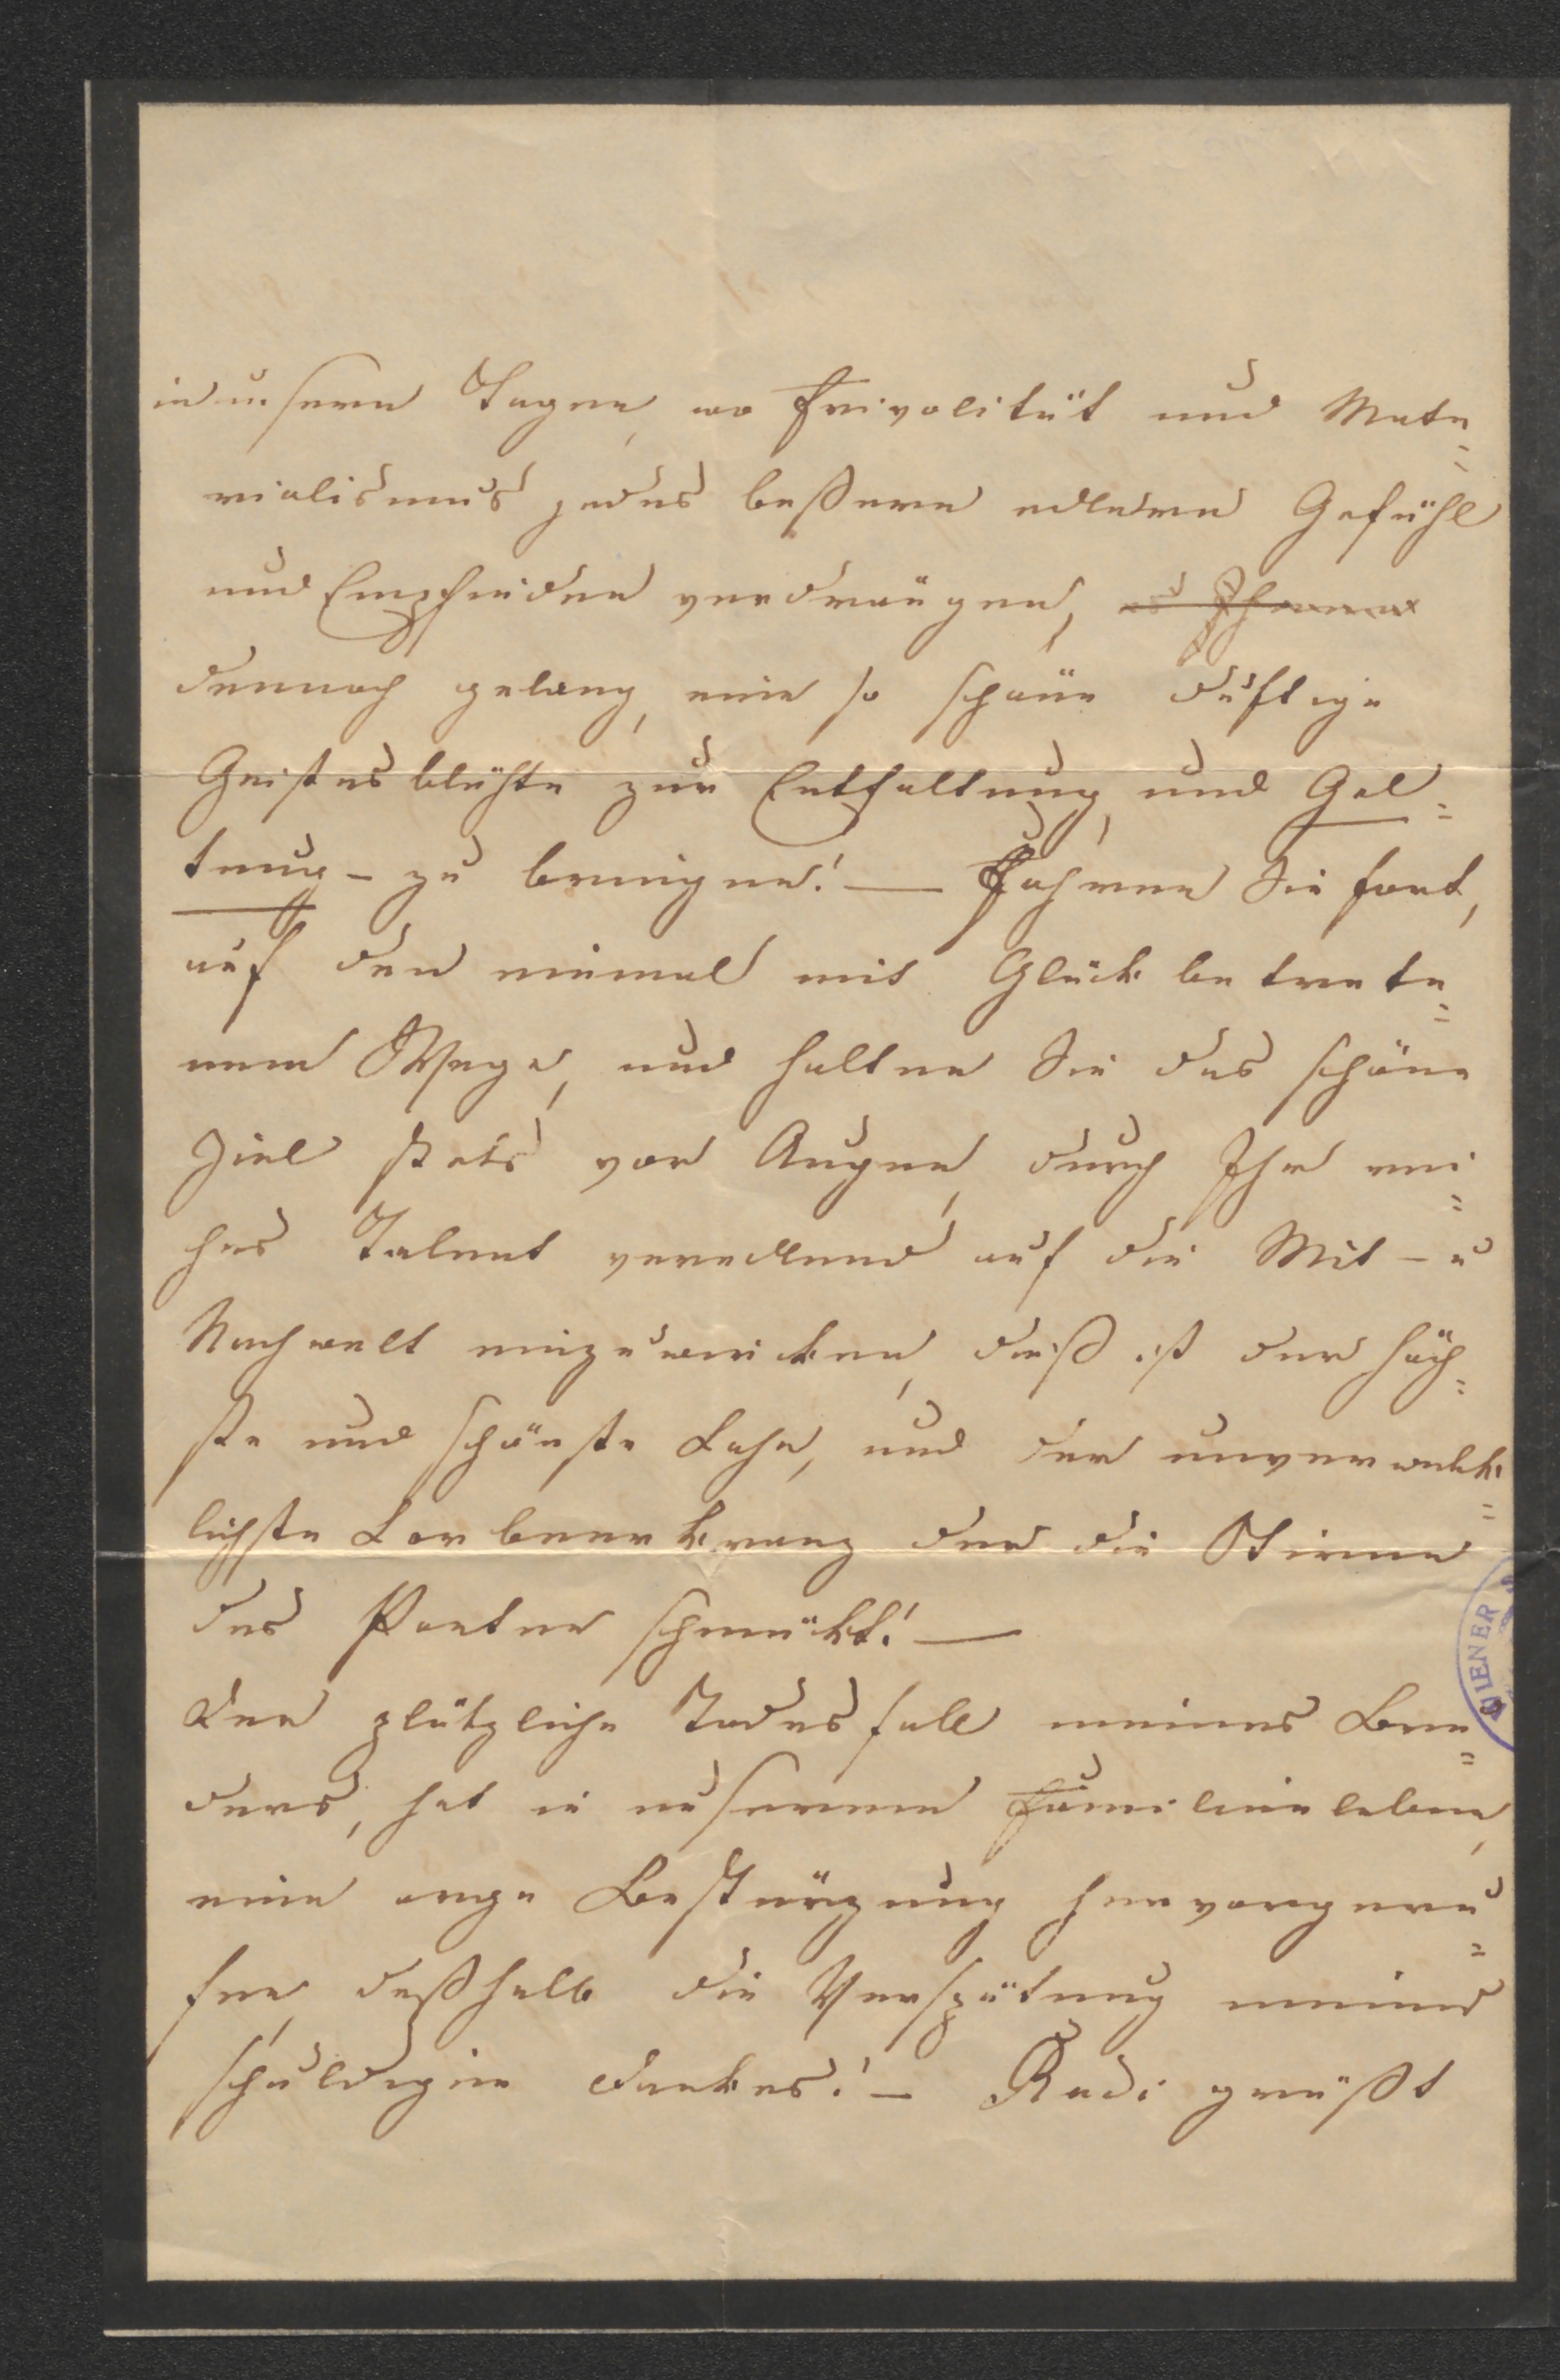 in unsern Tagen, wo Frivolität und Mate=
rialismus jedes beßere edlere Gefühl
und Empfinden verdrängen,
dennoch gelang, eine so schöne duftige
Geistesblühte zur Entfaltung, und Gel=
tung – zu bringen! — Fahren Sie fort,
auf den einmal mit Glück betrete=
nen Wege, und halten Sie das schöne
Ziel stets vor Augen, durch Ihr rei=
ches Talent veredlend auf die Mit – u
Nachwelt einzuwirken, dieß ist der höch=
ste und schönste Lohn, und der unverwelk=
lichste Lorbeerkranz der die Stirne
des Poeten schmückt! —
Der plötzliche Todesfall meines Bru=
ders, hat in unserem Familienleben,
eine arge Bestürzung hervorgeru=
fen, deßhalb die Verspätung meines
schuldigen Dankes! – Rudi grüßt
WIENER